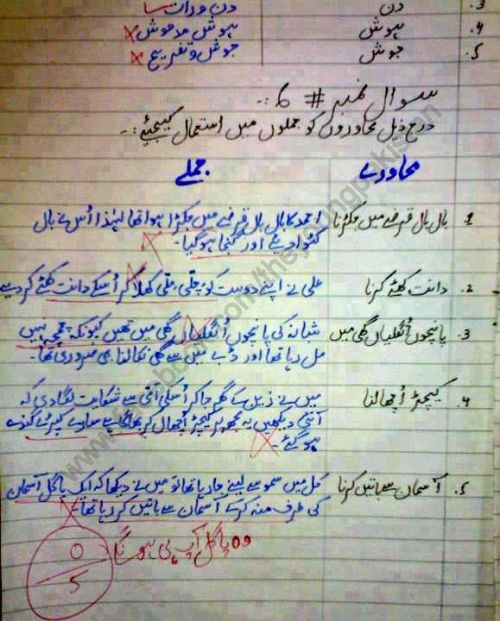 ۳. دن دن و رات
۴. ہوش ہوش مدہوش
۵. جوش جوش و تفریح
سوال نمبر # 6 :-
درج ذیل محاوروں کو جملوں میں استعمال کیجیئے :-
محاورے جملے
1. بال بال قرضے میں جکڑنا احمد کا بال بال قرضے میں جکڑا ہوا تھا لہٰذا اُس نے بال
کٹوا دیئے اور گنجا ہوگیا۔
۲. دانت کھٹے کرنا علی نے اپنے دوست کو کھلا کر اُسکے دانت کھٹے کر دیے
۳. پانچوں اُنگلیاں گھی میں شانہ کی پانچوں اُنگلیاں گھی میں تھیں کیونکہ چمچہ نہیں
مل رہا تھا اور ڈبے میں سے گھی نکالنا بھی ضروری تھا۔
۴. کیچڑ اُچھالنا میں نے کے گھر جا کر اُسکی امّی سے شکایت لگا دی کہ
آنٹی دیکھیں یہ مجھ پر کیچڑ اُچھال کر بھاگا ہے سارے کپڑے گندے
ہوگئے۔
۵. آسمان سے باتیں کرنا کل میں سموسے لینے جا رہا تھا تو میں نے دیکھا کہ ایک پاگل آسمان
کی طرف منہ کرکے آسمان سے باتیں کر رہا تھا۔
وہ پاگل آپ ہی ہونگا
0
5